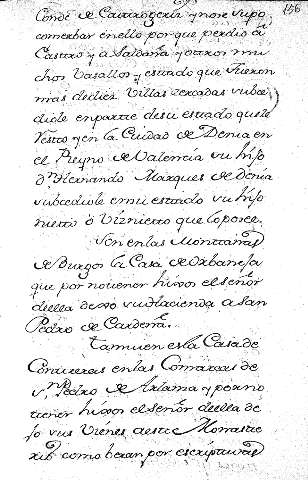 156
Conde de Castrogeriz y no se supo
conserbar en ello por que perdio a
Castro y a Saldaña y otros mu
chos Vasallos y estado que fueron
mas de diez Villas cercadas subce
diole en parte de su estado que le
resto y en la Ciudad de Denia en
el Reyno de Valencia su hijo
Dn Hernando Marques de Denia
subcediole en su estado su hijo
nietto o Viznietto que lo posee.
Son en las Monttañas
de Burgos la Casa de
que por no tener hixos el señor
de ella dexo su Hacienda a san
Pedro de Cardeña.
Tamuien es la Casa de
Contreras en las Comarcas de
Sn Pedro de Arlanza y por no
tiener hixos el señor de ella de
jo sus Vienes a este Monaste
rio como beran por escripturas